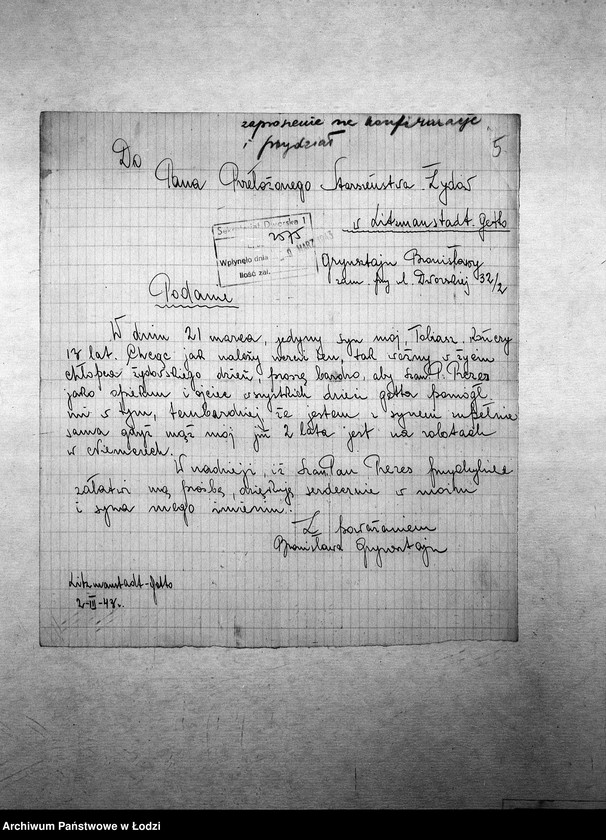 zaproszenie na konfirmację
i przydział
5
Do
Pana Przełożonego Starszeństwa Żydów
w Litzmanstadt-Getto
Sekretariat Dworska 1
2575
Wpłynęło dnia MARZ 1943
Ilość zał.
Grynsztajn Bronisławy
zam. przy ul. Dworskiej 32/2
Podanie
W dniu 21 marca, jedyny syn mój, Tobiasz, kończy
13 lat. Chcąc jak należy uczcić ten, tak ważny w życiu
chłopca żydowskiego dzień, proszę bardzo, aby Szan. P. Prezes
jako opiekun i ojciec wszystkich dzieci getta pomógł
mi w tym, tembardziej że jestem z synem zupełnie
sama gdyż mąż mój już 2 lata jest na robotach
w Niemczech.
W nadzieji, iż Szan. Pan Prezes przychylnie
załatwi mą prośbę, dziękuję serdecznie w moim
i syna mego imieniu.
Z poważaniem
Bronisława Grynsztajn
Litzmanstadt-Getto
2-III-43r.
Archiwum Państwowe w Łodzi